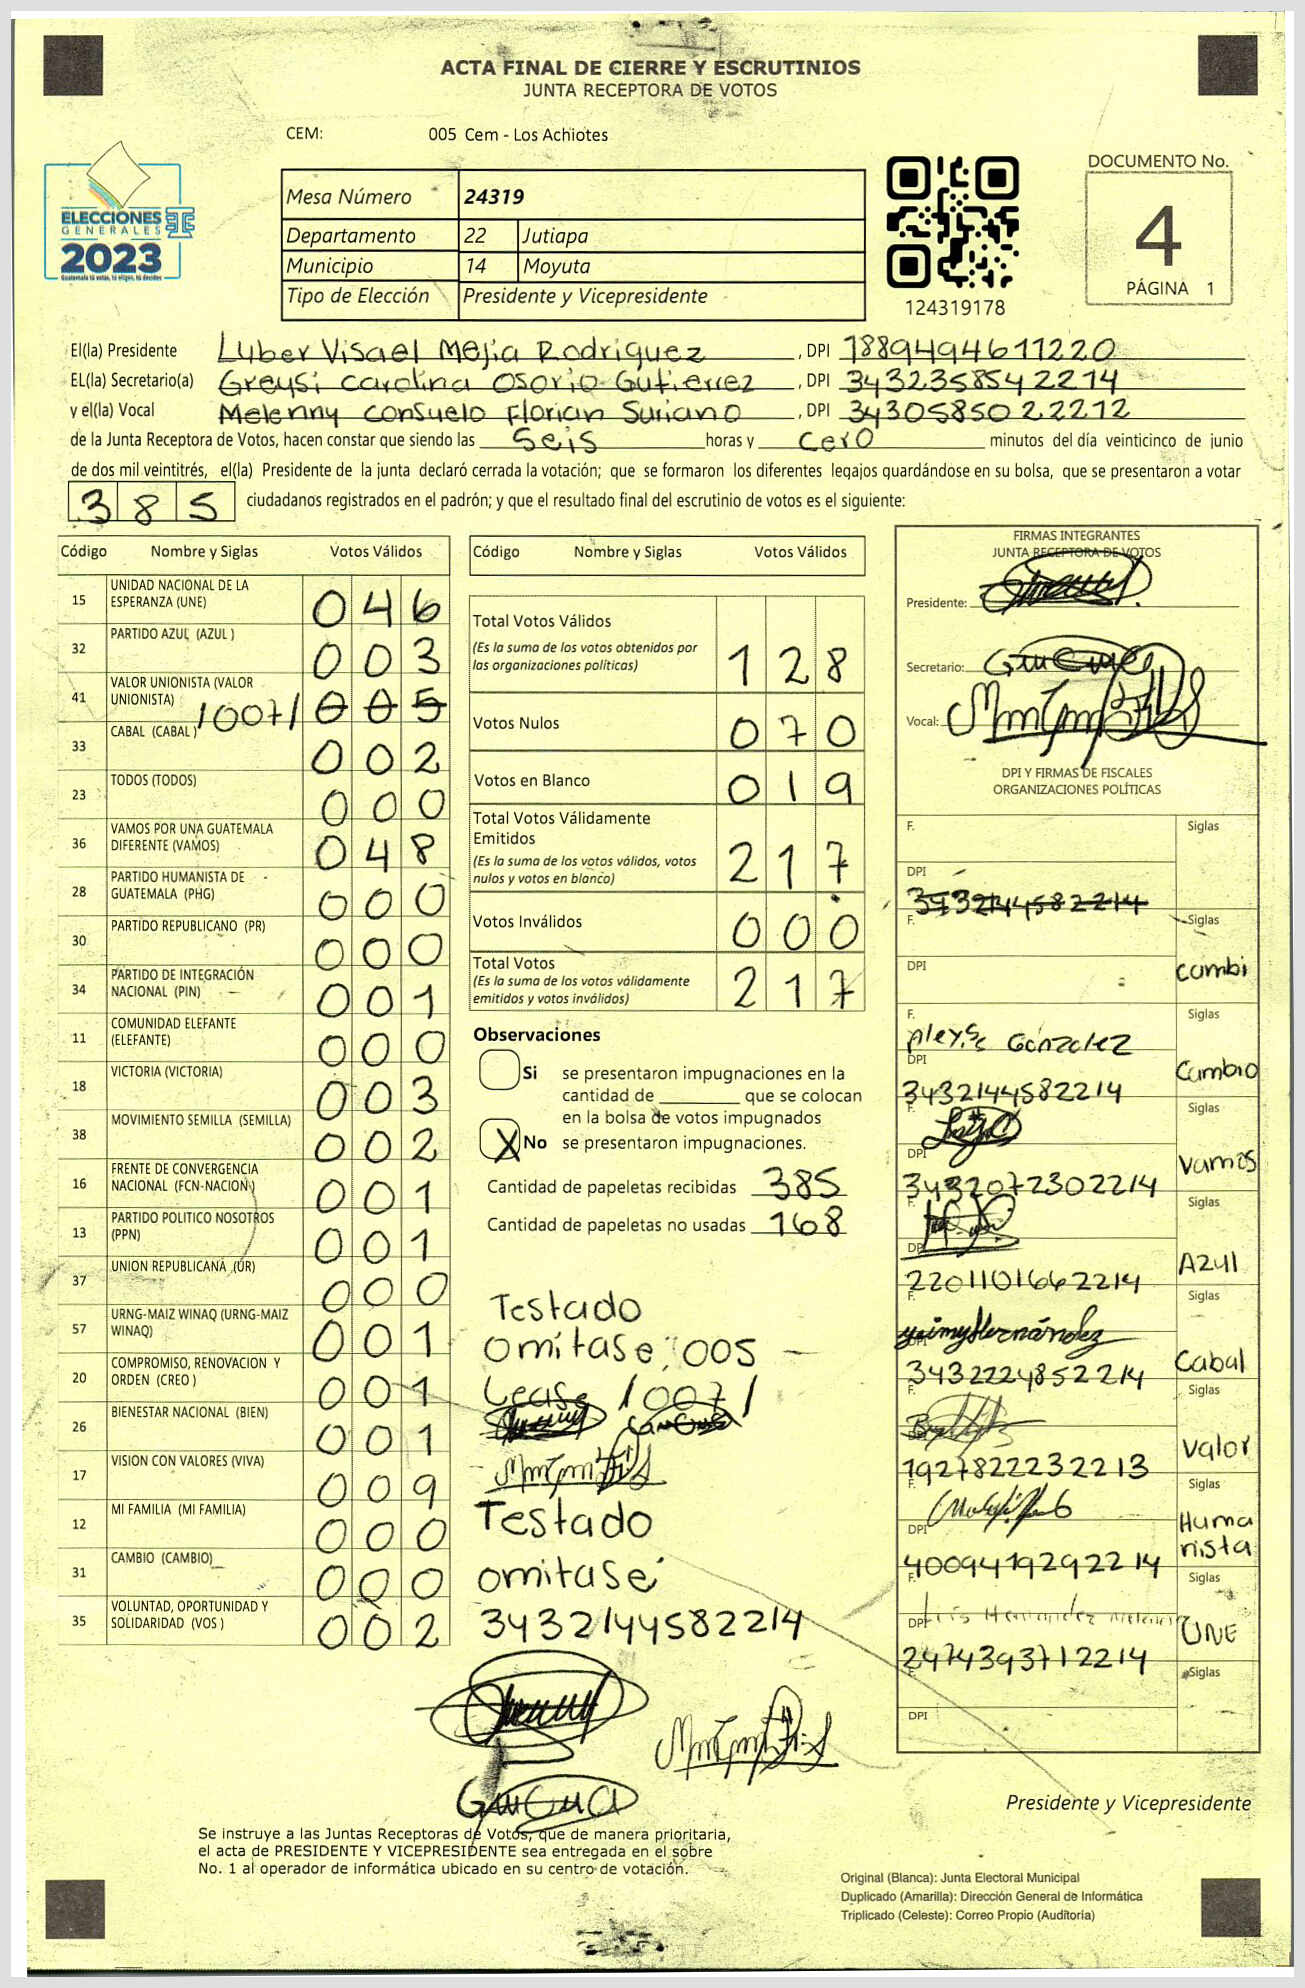 ACTA FINAL DE CIERRE Y ESCRUTINIOS
JUNTA RECEPTORA DE VOTOS
CEM: 005 Cem - Los Achiotes
ELECCIONES
GENERALES
2023
Guatemala tú votas, tú eliges, tú decides
Mesa Número 24319
Departamento 22 Jutiapa
Municipio 14 Moyuta
Tipo de Elección Presidente y Vicepresidente
124319178
DOCUMENTO No.
4
PÁGINA 1
El(la) Presidente Lyber Visael Mejia Rodriguez , DPI 1889494611220
EL(la) Secretario(a) Greysi Carolina Osorio Gutierrez , DPI 3432358542214
y el(la) Vocal Melenny Consuelo Florian Suriano , DPI 3430585022212
de la Junta Receptora de Votos, hacen constar que siendo las Seis horas y cero minutos del día veinticinco de junio
de dos mil veintitrés, el(la) Presidente de la junta declaró cerrada la votación; que se formaron los diferentes legajos guardándose en su bolsa, que se presentaron a votar
385 ciudadanos registrados en el padrón; y que el resultado final del escrutinio de votos es el siguiente:
Código Nombre y Siglas Votos Válidos
15 UNIDAD NACIONAL DE LA ESPERANZA (UNE) 046
32 PARTIDO AZUL (AZUL ) 003
41 VALOR UNIONISTA (VALOR UNIONISTA) /007/ 005
33 CABAL (CABAL ) 002
23 TODOS (TODOS) 000
36 VAMOS POR UNA GUATEMALA DIFERENTE (VAMOS) 048
28 PARTIDO HUMANISTA DE GUATEMALA (PHG) 000
30 PARTIDO REPUBLICANO (PR) 000
34 PARTIDO DE INTEGRACIÓN NACIONAL (PIN) 001
11 COMUNIDAD ELEFANTE (ELEFANTE) 000
18 VICTORIA (VICTORIA) 003
38 MOVIMIENTO SEMILLA (SEMILLA) 002
16 FRENTE DE CONVERGENCIA NACIONAL (FCN-NACION) 001
13 PARTIDO POLITICO NOSOTROS (PPN) 001
37 UNION REPUBLICANA (UR) 000
57 URNG-MAIZ WINAQ (URNG-MAIZ WINAQ) 001
20 COMPROMISO, RENOVACION Y ORDEN (CREO ) 001
26 BIENESTAR NACIONAL (BIEN) 001
17 VISION CON VALORES (VIVA) 009
12 MI FAMILIA (MI FAMILIA) 000
31 CAMBIO (CAMBIO) 000
35 VOLUNTAD, OPORTUNIDAD Y SOLIDARIDAD (VOS ) 002
Código Nombre y Siglas Votos Válidos
Total Votos Válidos 128
(Es la suma de los votos obtenidos por las organizaciones políticas)
Votos Nulos 070
Votos en Blanco 019
Total Votos Válidamente Emitidos 217
(Es la suma de los votos válidos, votos nulos y votos en blanco)
Votos Inválidos 000
Total Votos 217
(Es la suma de los votos válidamente emitidos y votos inválidos)
Observaciones
Si se presentaron impugnaciones en la
cantidad de ________ que se colocan
en la bolsa de votos impugnados
X No se presentaron impugnaciones.
Cantidad de papeletas recibidas 385
Cantidad de papeletas no usadas 168
Testado
omitase: 005
Lease /007/
Testado
omitase
3432144582214
FIRMAS INTEGRANTES
JUNTA RECEPTORA DE VOTOS
Presidente:
Secretario:
Vocal:
DPI Y FIRMAS DE FISCALES
ORGANIZACIONES POLÍTICAS
F. Siglas
DPI
3432144582214
F. Siglas
DPI cambi
F. Siglas
Aleyss Gonzalez
DPI Cambio
3432144582214
F. Siglas
DPI Vamos
3432072302214
F. Siglas
DPI Azul
2201101662214
F. Siglas
yeimy Hernández
DPI Cabal
3432224852214
F. Siglas
DPI Valor
1927822232213
F. Siglas
DPI Humanista
4009419292214
F. Siglas
DPI UNE
2474393712214
F. Siglas
DPI
Presidente y Vicepresidente
Se instruye a las Juntas Receptoras de Votos, que de manera prioritaria,
el acta de PRESIDENTE Y VICEPRESIDENTE sea entregada en el sobre
No. 1 al operador de informática ubicado en su centro de votación.
Original (Blanca): Junta Electoral Municipal
Duplicado (Amarilla): Dirección General de Informática
Triplicado (Celeste): Correo Propio (Auditoría)